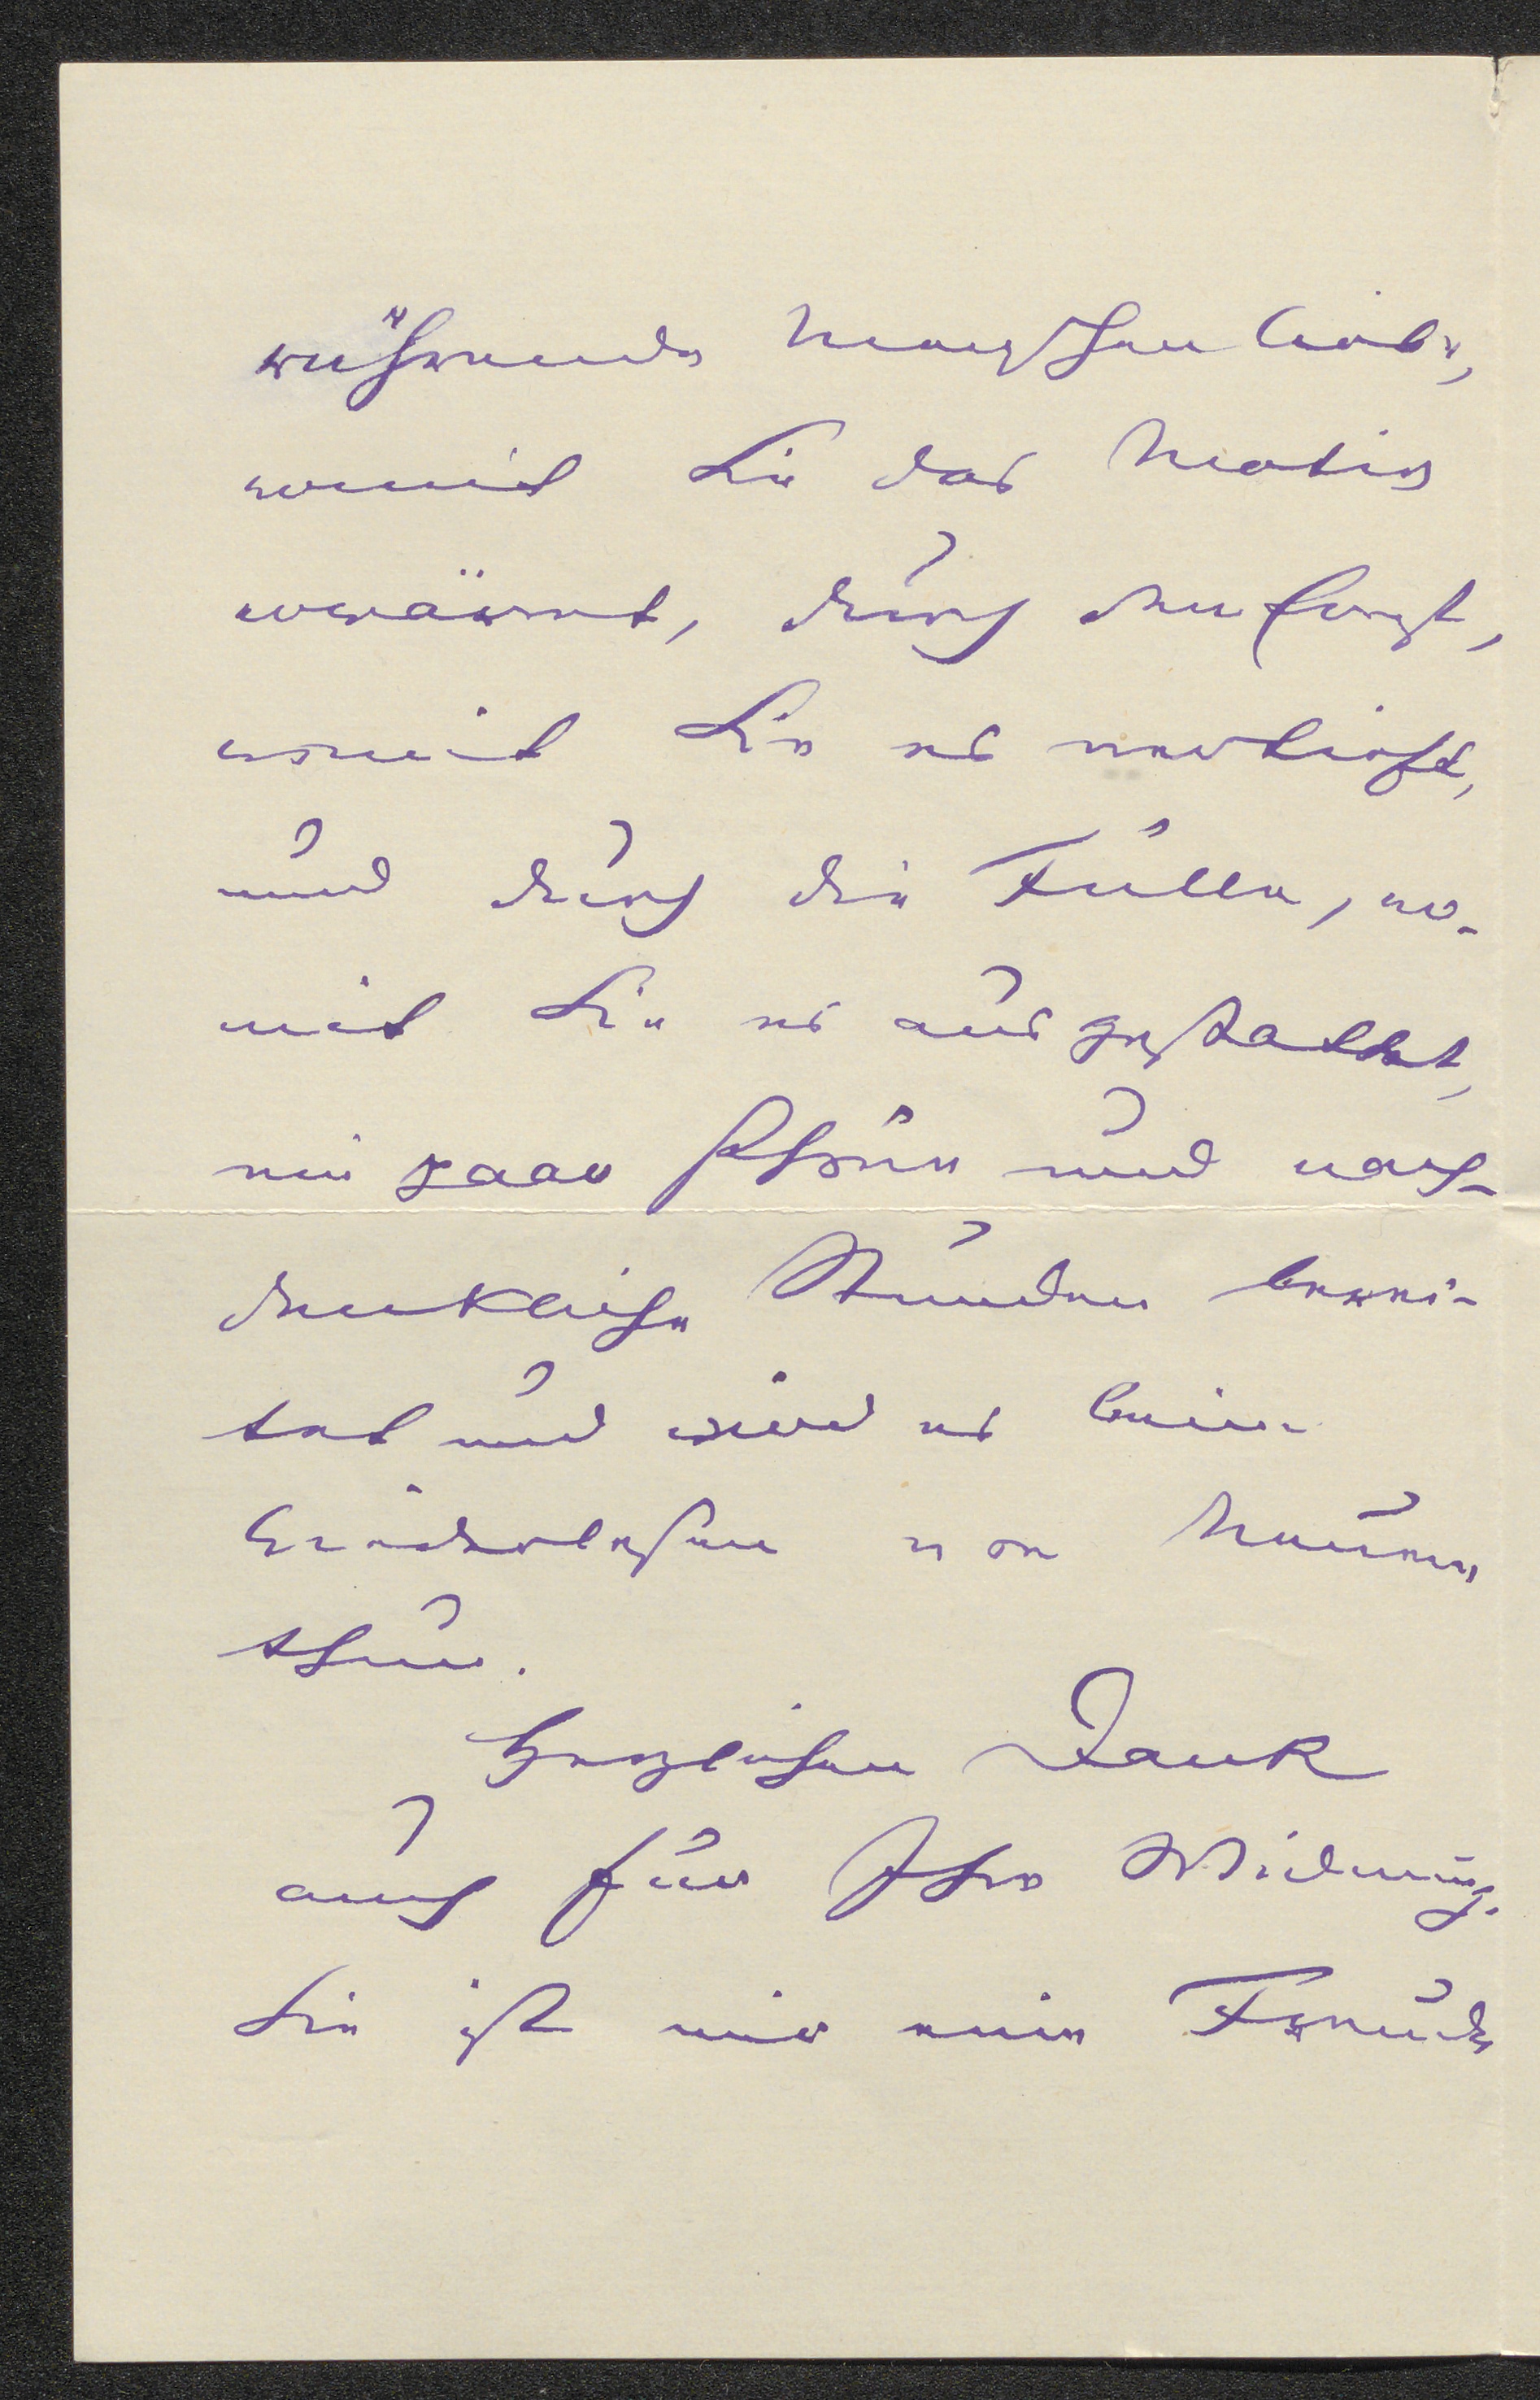 rührende Menschenliebe,
womit Sie das Motiv
erwärmt, durch den Ernst,
womit Sie es vertieft,
und durch die Fülle, wo-
mit Sie es ausgestattet,
ein paar schöne und nach-
denkliche Stunden berei-
tet und wird es beim
Wiederlesen von Neuem
thun.
Herzlichen Dank
auch für Ihre Widmung.
Sie ist mir eine Freude